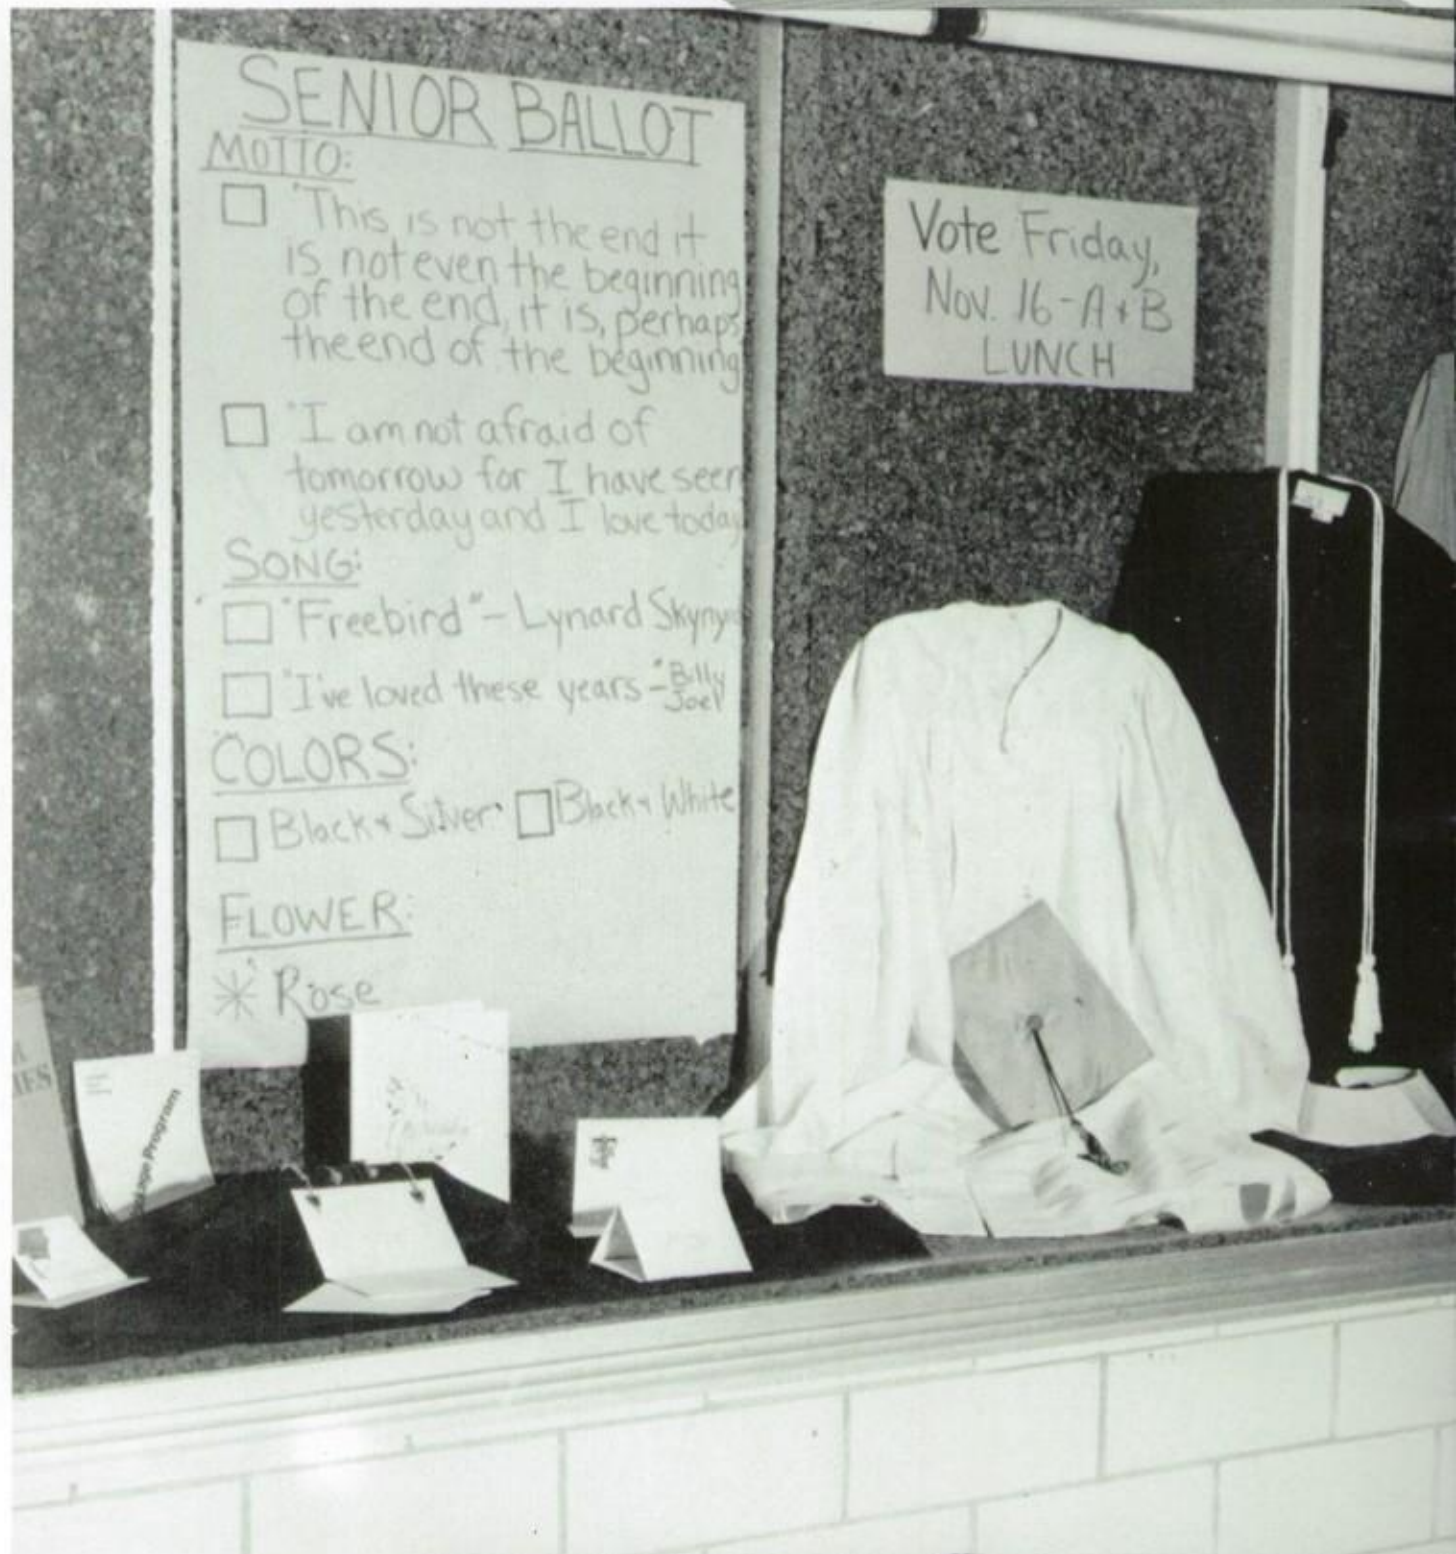 SENIOR BALLOT
MOTTO:
"This is not the end it
is not even the beginning
of the end, it is, perhaps,
the end of the beginning
"I am not afraid of
tomorrow for I have seen
yesterday and I love today
SONG:
"Freebird" - Lynard Skynyrd
"I've loved these years -" Billy
Joel
COLORS:
Black & Silver Black & White
FLOWER:
Rose
Vote Friday,
Nov. 16 - A & B
LUNCH
Program